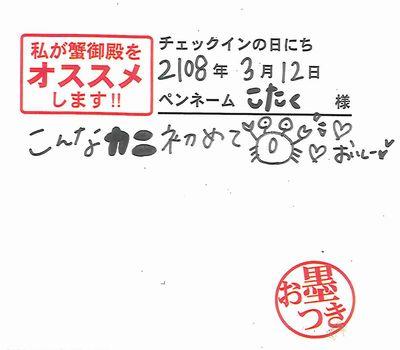 私が蟹御殿を
オススメ
します!!
チェックインの日にち
2108年 3月12日
ペンネーム こたく 様
こんなカニ初めて
おいしー
お墨つき